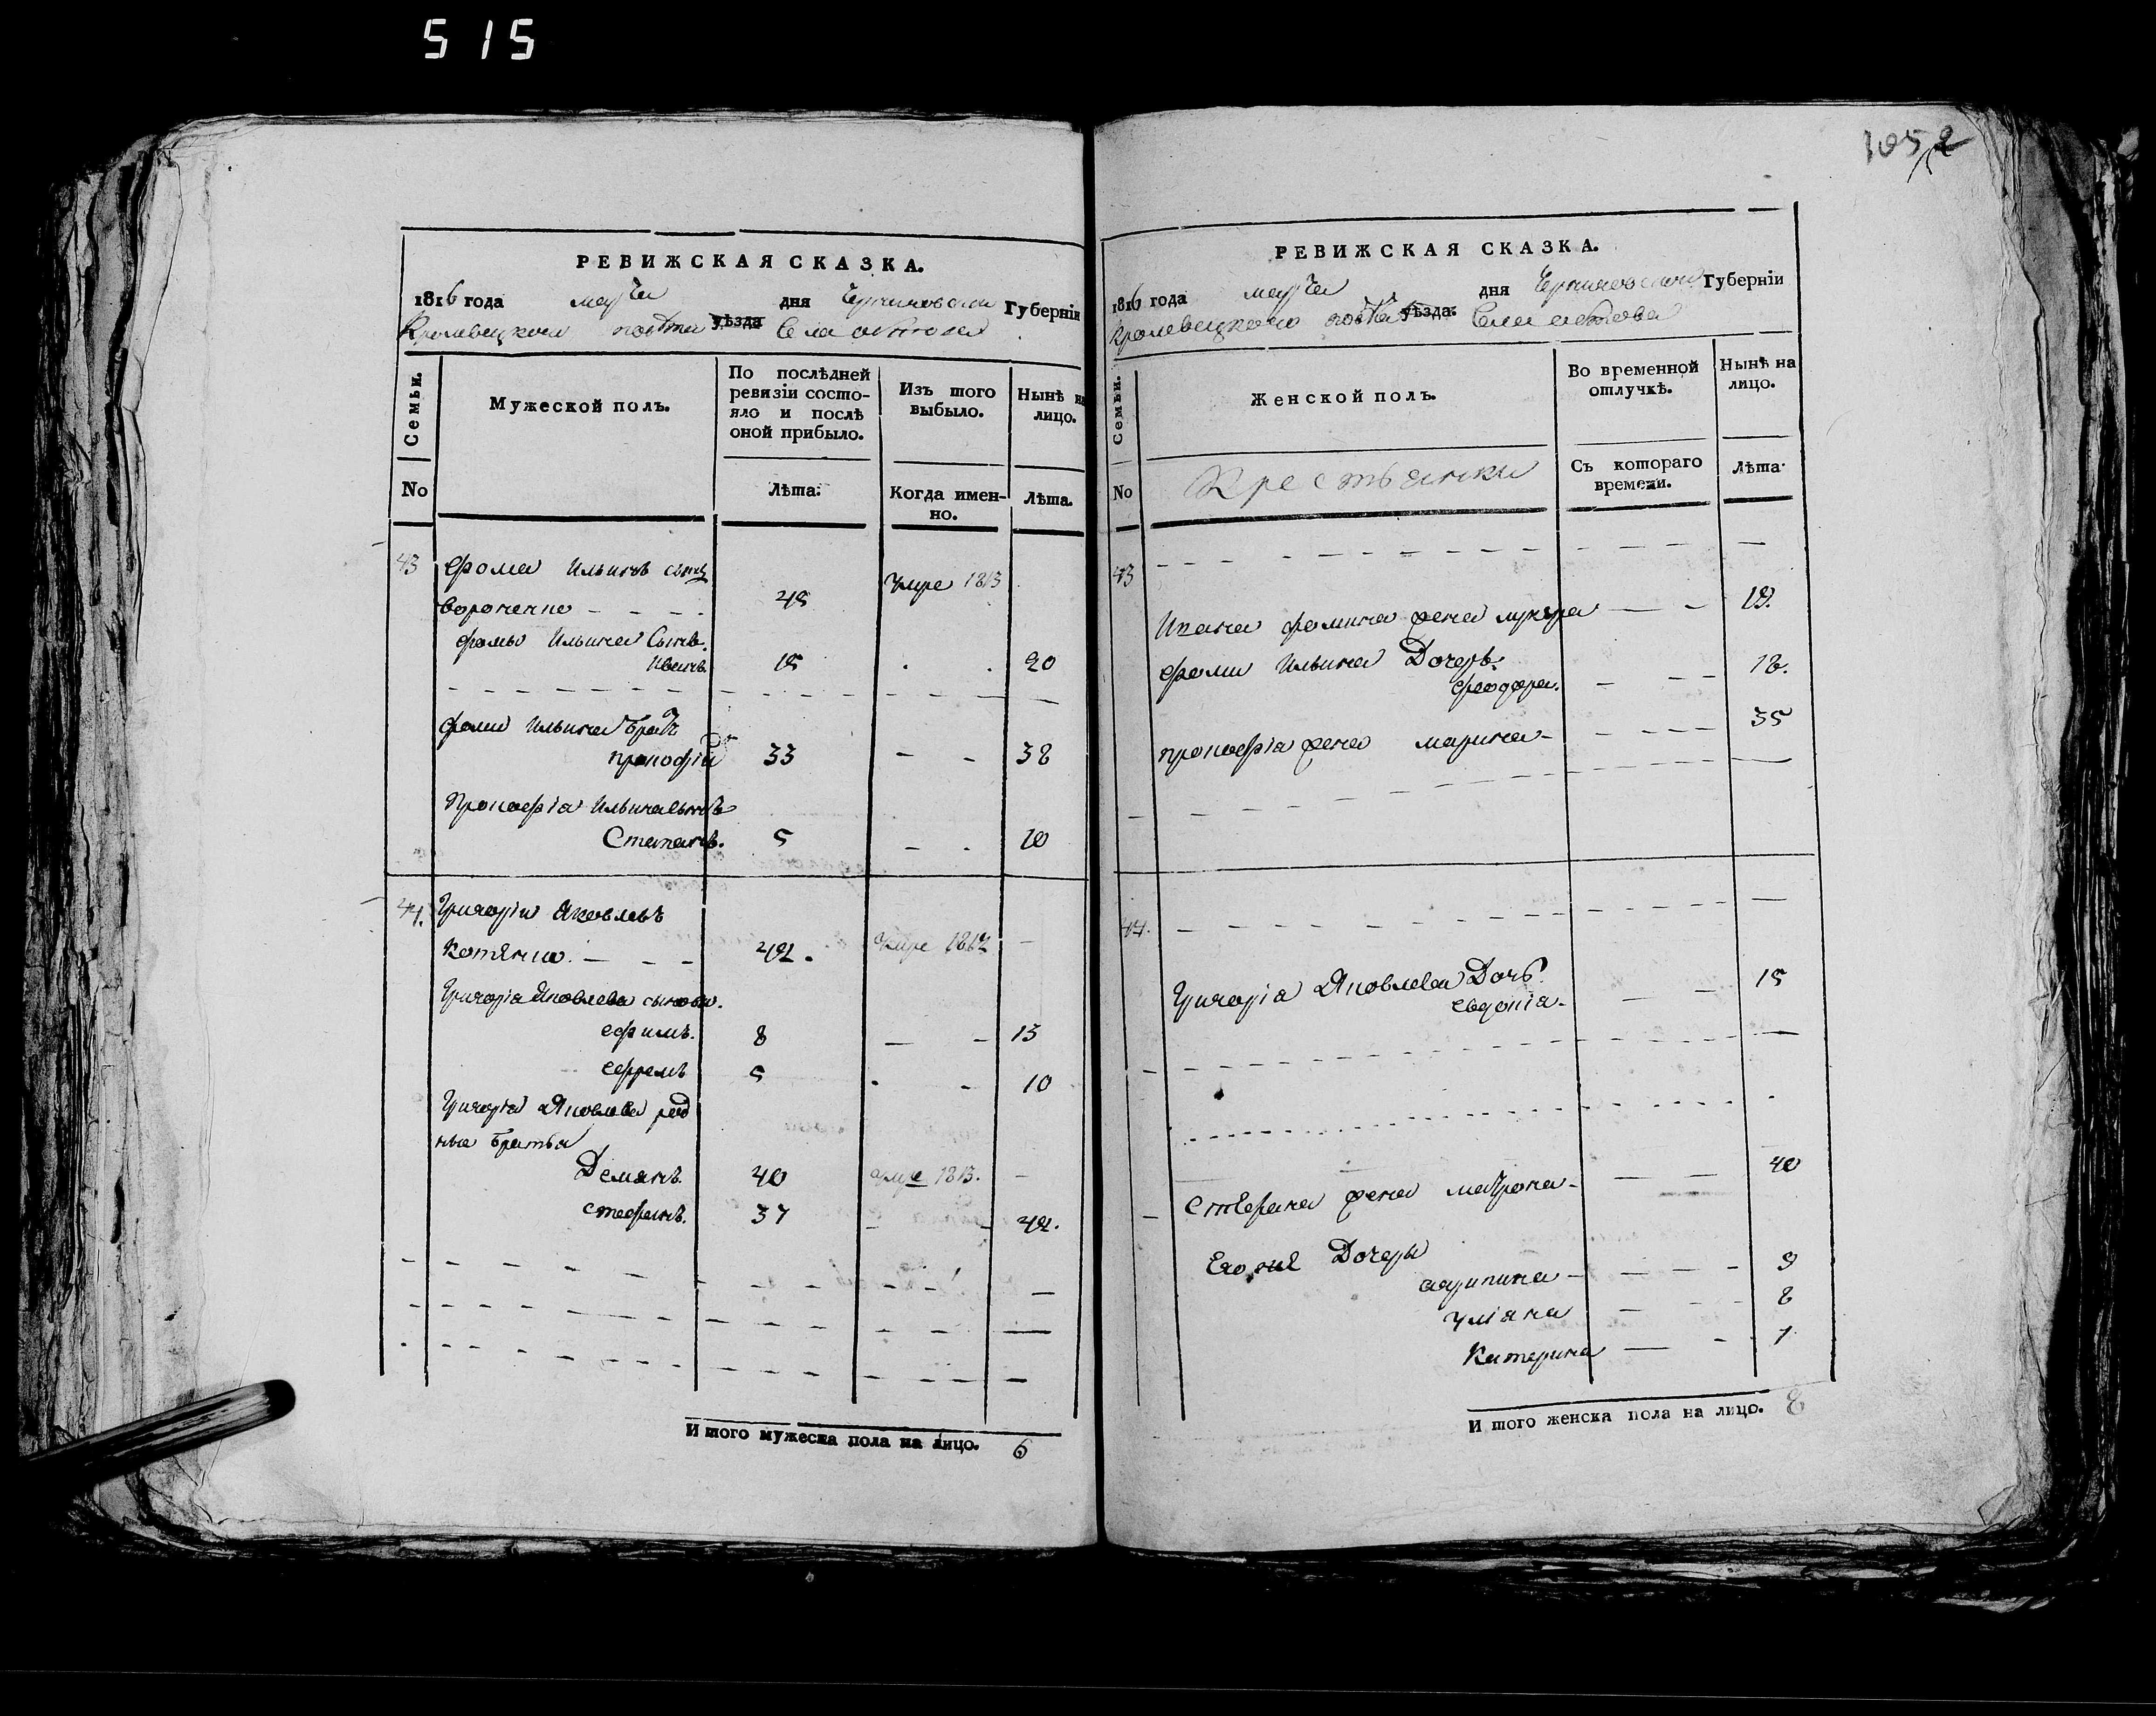 515
1052
РЕВИЖСКАЯ СКАЗКА.
1816 года марта дня Черниговской Губерніи
Кролевецкого повета уѣзда Села
Семьи.
Мужеской полъ.
По послѣдней ревизіи состо-
яло и послѣ
оной прибыло.
Изъ того
выбыло.
Нынѣ на
лицо.
No
Лѣта.
Когда имен-
но.
Лѣта.
43 Фома Ильинъ сынъ
Вороненко 45 умре 1813
Фомы Ильина Сынъ
Иванъ 15 20
Фоми Ильина братъ
Прокофій 33 38
Прокофіа Ильина сынъ
Степанъ. 5 10
44. Григорій Яковлевъ
42. умре 1812
Григоріа Яковлева сынови.
Ефимъ. 8 13
Ефремъ 5 10
Григоріа Яковлева род
ные братья
Демянъ. 40 умре 1813.
Стефанъ. 37 42.
Итого мужеска пола на лицо. 6
РЕВИЖСКАЯ СКАЗКА.
1816 года марта дня Черниговской Губерніи
Кролевецкого повета уѣзда. Села
Семьи.
Женской полъ.
Во временной
отлучкѣ.
Нынѣ на
лицо.
No
Крестьянки
Съ котораго
времени.
Лѣта.
43
Ивана Фомина жена 19.
Фоми Ильина Дочерь.
Феодора. 12.
Прокофіа жена Марина 35
44.
Григоріа Яковлева Дочь
Евдокіа 15
Стефана жена Матрона 40
Его же Дочеры
Агрипина 9
Уліяна 8
Катерина 1
Итого женска пола на лицо. 8